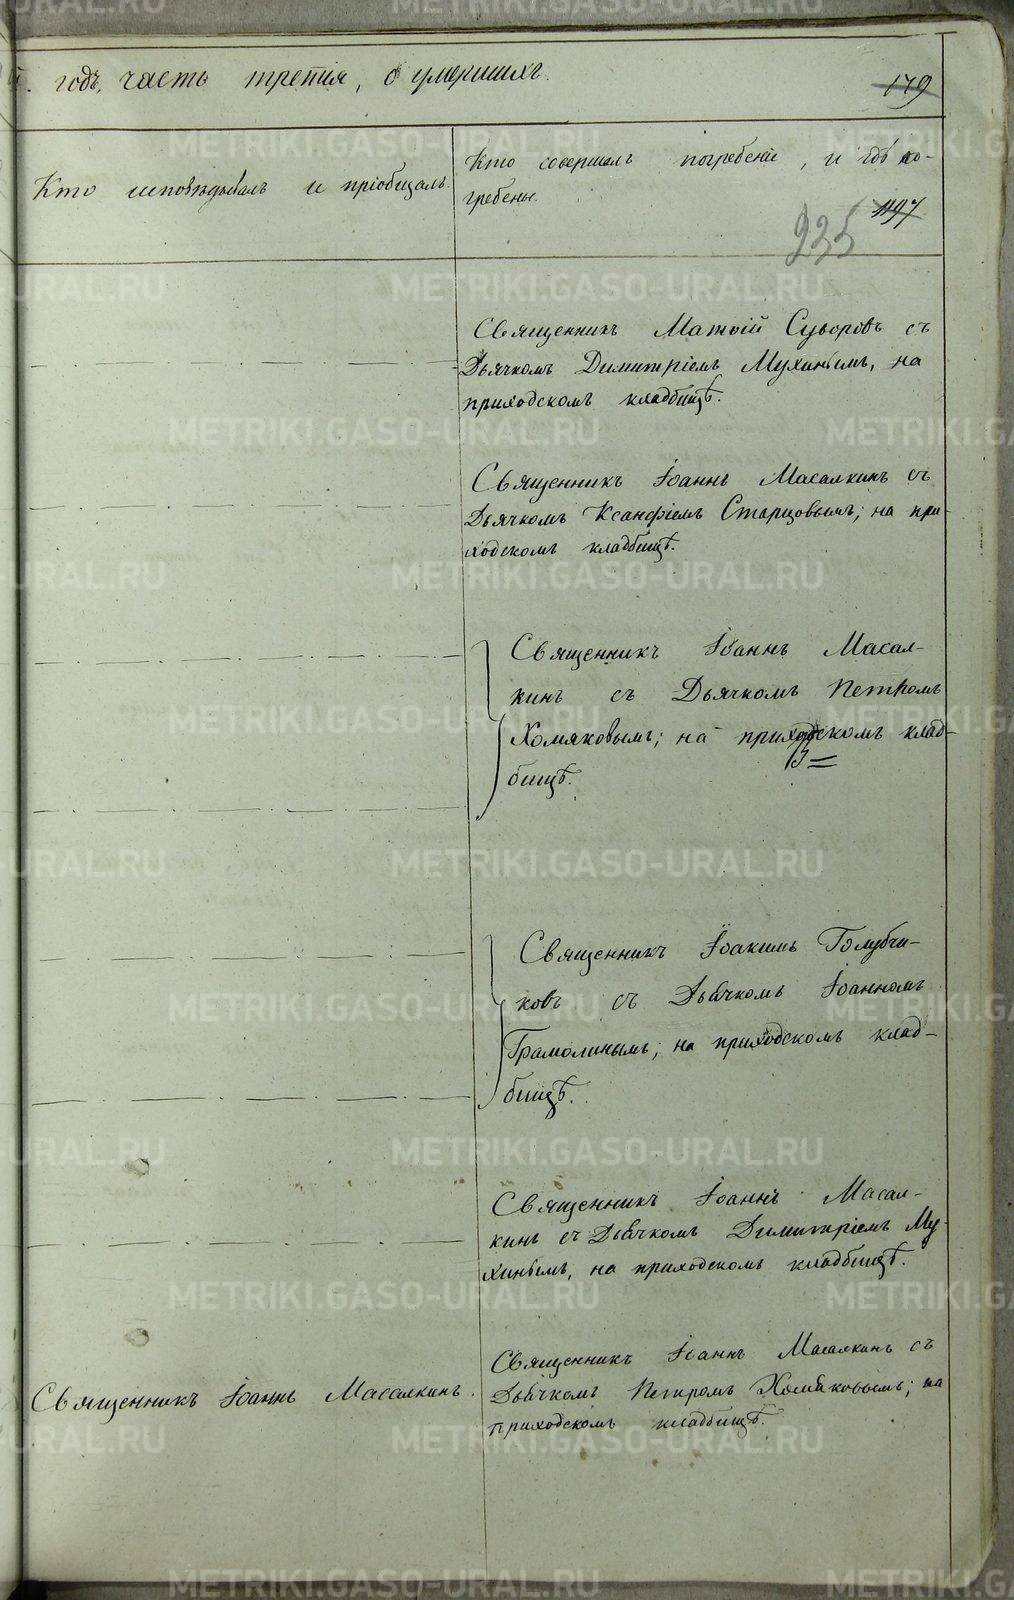 годъ, часть третія, о умершихъ.
179
Кто исповѣдывалъ и пріобщалъ.
Кто совершалъ погребеніе, и гдѣ по-
гребены.
1197
235
Священникъ Матѳій Суворовъ съ
Дьячкомъ Димитріемъ Мухинымъ, на
приходскомъ кладбищѣ.
Священникъ Іоаннъ Масалкинъ съ
Дьячкомъ Ксанфіемъ Старцовымъ; на при-
ходскомъ кладбищѣ.
Священникъ Іоаннъ Масал-
кинъ съ Дьячкомъ Петромъ
Хомяковымъ; на приходскомъ клад-
бищѣ.
Священникъ Іоакимъ Голубчи-
ковъ съ Дьячкомъ Іоанномъ
Грамолинымъ; на приходскомъ клад-
бищѣ.
Священникъ Іоаннъ Масал-
кинъ съ Дьячкомъ Димитріемъ Му-
хинымъ, на приходскомъ кладбищѣ.
Священникъ Іоаннъ Масалкинъ.
Священникъ Іоаннъ Масалкинъ съ
Дьячкомъ Петромъ Хомяковымъ; на
приходскомъ кладбищѣ.
METRIKI.GASO-URAL.RU